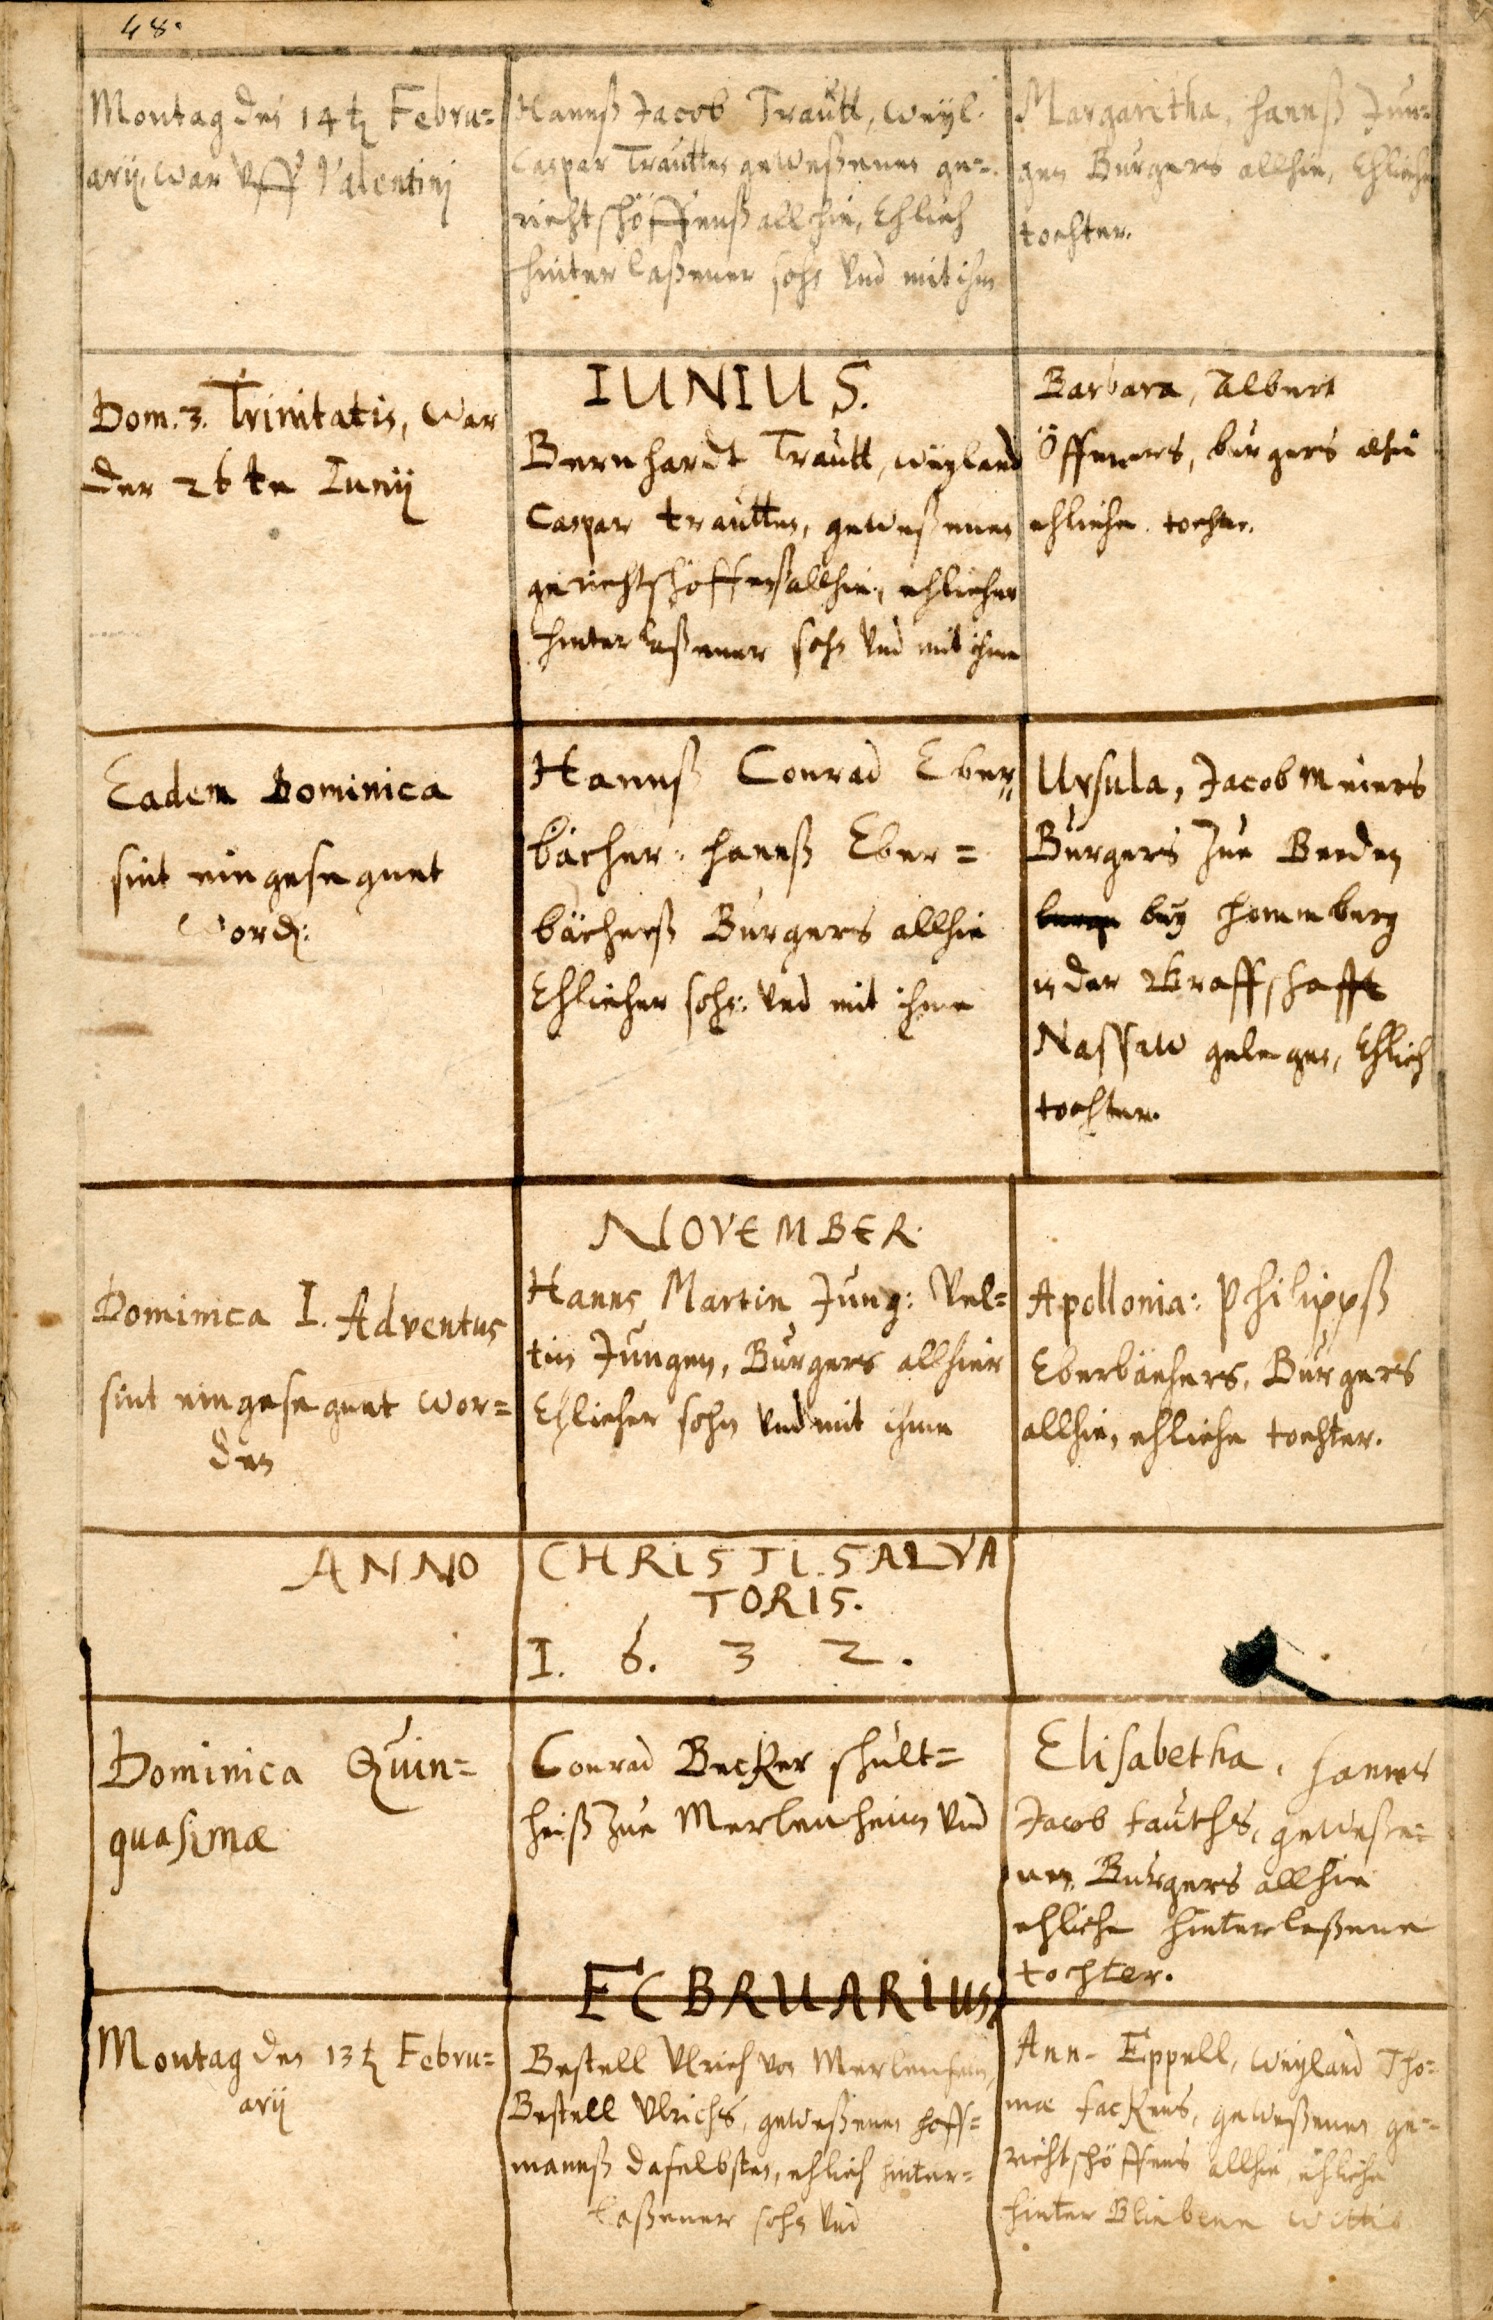 48.
Montag den 14t Febru=
arij, war Vff Valentinj
Hannß Jacob Trautt, Weyl.
Caspar Trautten geweßenen ge=
richtschöffenß allhie, Ehlich
hinterlaßener sohn Vnd mit ihm
Margaretha, hannß Jun=
gen Burgers allhie, Ehliche
tochter.
Dom. 3. Trinitatis, war
der 26te Iunij
IUNIUS.
Bernhardt Trautt, weyland
Caspar trautten, geweßenen
gerichtschöffenß allhie, ehlicher
hinterlaßener sohn Vnd mit ihme
Barbara, Albert
Öffeners, burgers alhie
ehliche tochter.
Eadem Dominica
sint eingesegnet
word:
Hannß Conrad Eber=
bächer: hannß Eber=
bächerß Burgers allhie
Ehlicher sohn: Vnd mit ihme
Ursula, Jacob Meiers
Burgers Zue Beeden
bey hommberg
in der Graffschafft
Nassaw gelegen, Ehlich
tochter.
NOVEMBER.
Dominica I. Adventus
sint eingesegnet wor=
den
Hanns Martin Jung: Vel=
tin Jungen, Burgers allhier
Ehlicher sohn Vnd mit ihme
Apollonia: Philippß
Eberbächers, Burgers
allhie, ehliche tochter.
ANNO CHRISTI SALVA
TORIS.
I. 6. 3 2.
Dominica Quin=
quasimæ
Conrad Becker schult=
heiß Zue Merlenheim Vnd
Elisabetha, hannes
Jacob fauths, geweße=
nen Burgers allhie
ehliche hinterlaßene
tochter.
FEBRUARIUS.
Montag den 13t Febru=
arij
Bestell Vlrich von Merlenheim,
Bestell Vlrichs, geweßenen hoff=
mannß daselbsten, ehlich hinter=
laßener sohn Vnd
Ann- Eppell, Weyland Tho=
mæ fackens, geweßenen ge=
richtschöffens allhie, ehliche
hinter Bliebene wittib